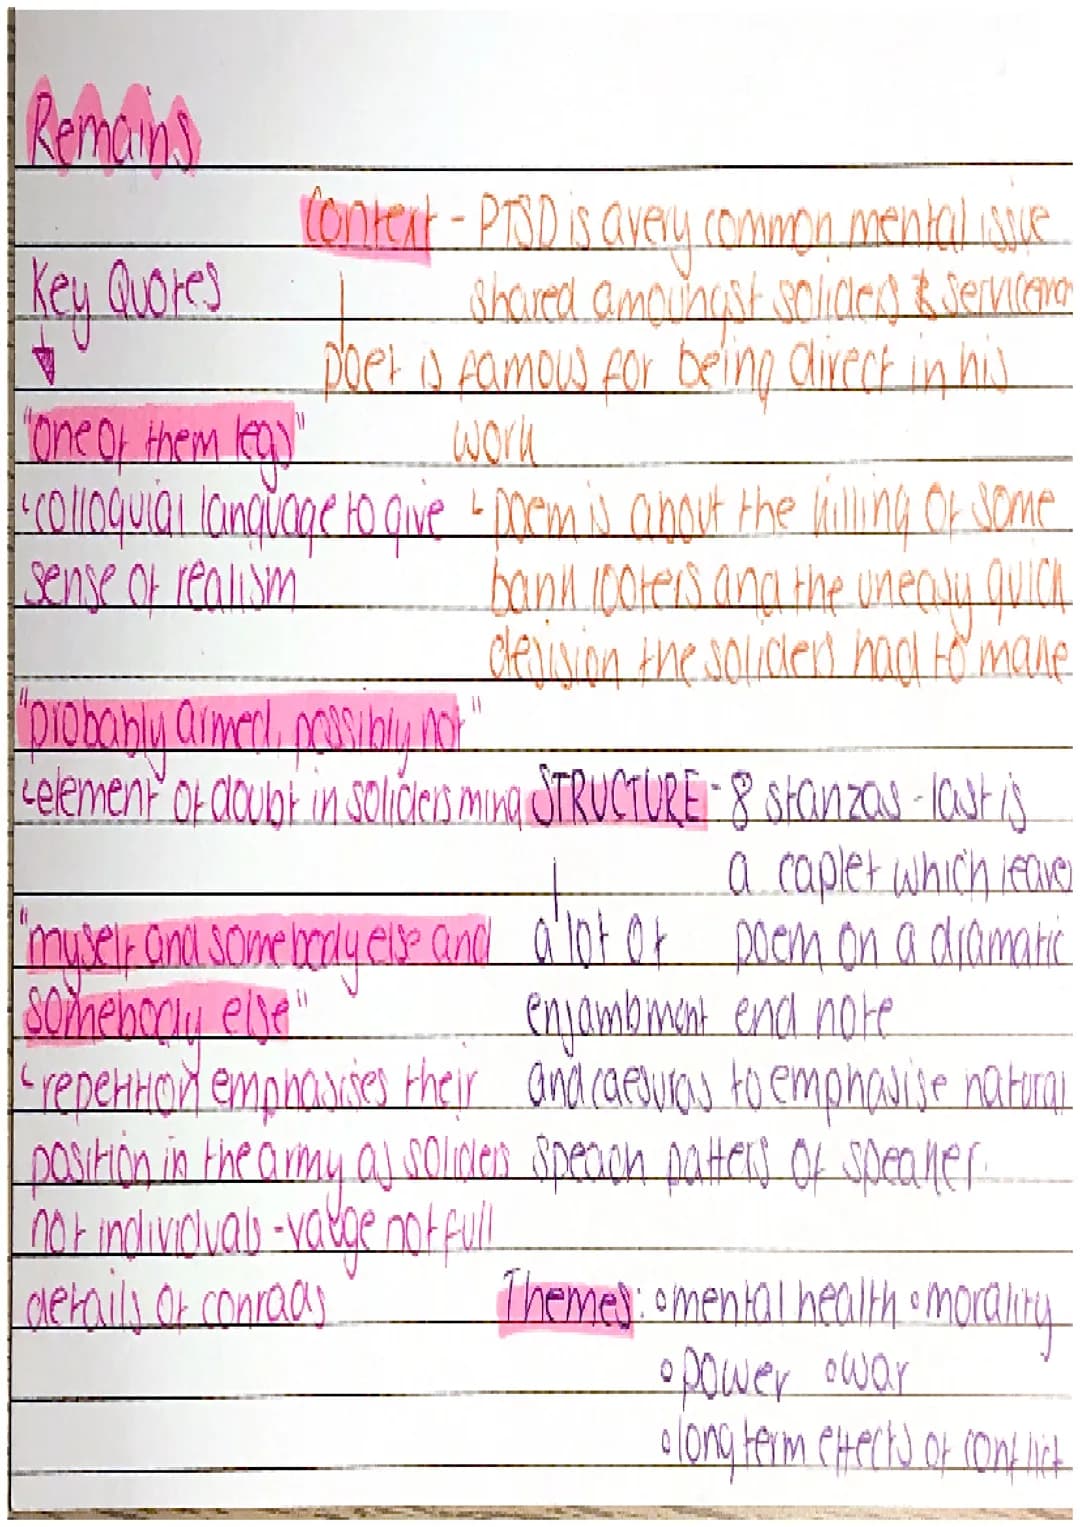 Remains
Context - PTSD is a very common mental issue
shared amoungst soliders & servicemen
poet is famous for being direct in his
work
↳ poem is about the killing of some
bank looters and the uneasy quick
desision the soliders had to make
Key Quotes
"one of them legs"
↳ colloquial language to give
sense of realism
"probably armed, possibly not"
↳ element of doubt in soliders mind
"myself and somebody else and
somebody else"
↳ repetition emphasises their
position in the army as soliders
not individuals - vauge not full
details of conrads
STRUCTURE - 8 stanzas - last is
a caplet which leaves
poem on a dramatic
end note
a lot of
enjambment
and caesuras to emphasise natural
speach patters of speaker.
Themes: ◦ mental health ◦ morality
◦ power ◦ war
◦ long term effects of conflict